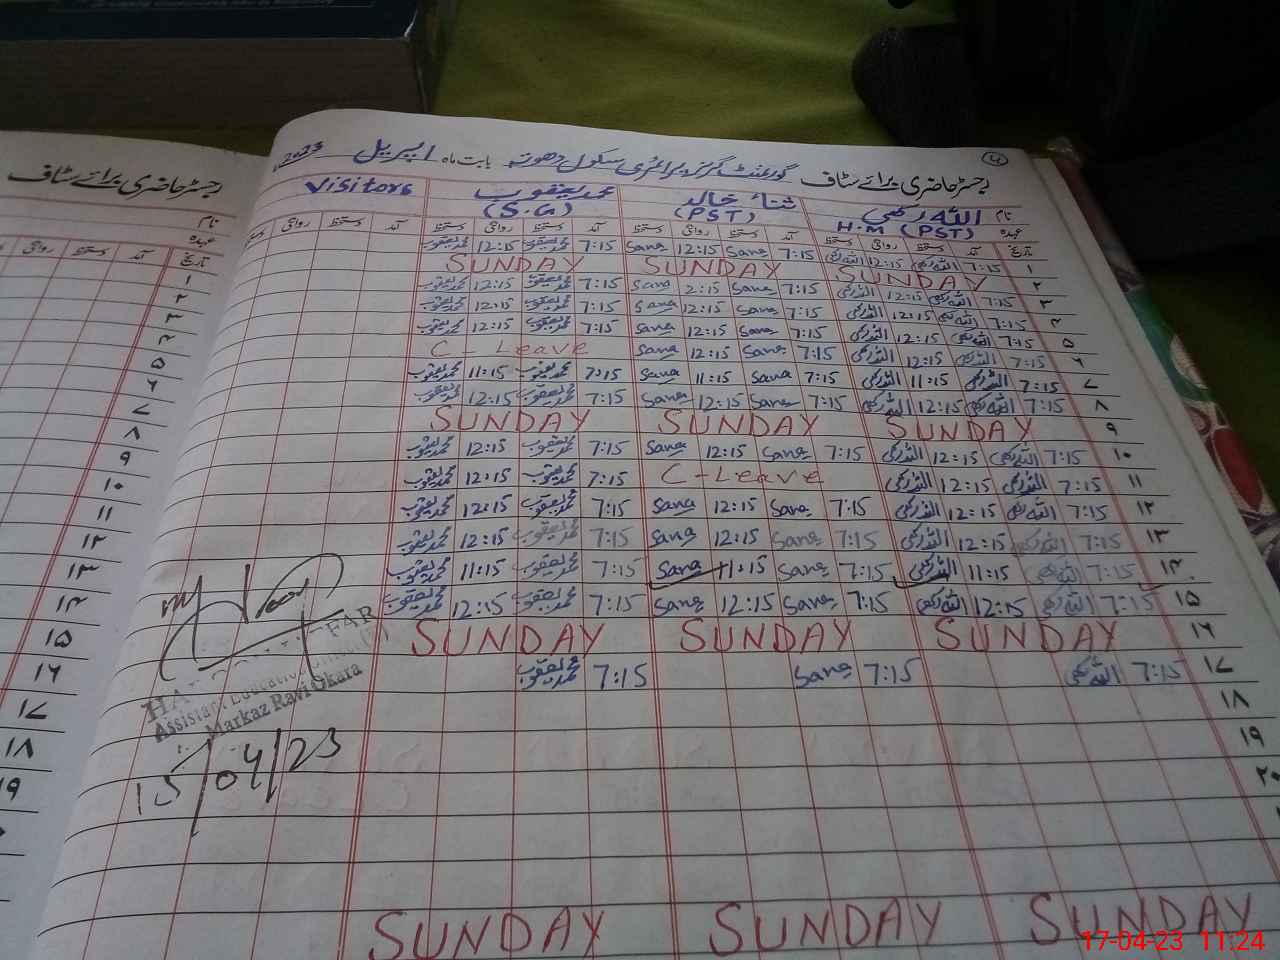 رجسٹر حاضری برائے سٹاف
نام
عہدہ
تاریخ آمد دستخط روانگی
۱
۲
۳
۴
۵
۶
۷
۸
۹
۱۰
۱۱
۱۲
۱۳
۱۴
۱۵
۱۶
۱۷
۱۸
۱۹
رجسٹر حاضری برائے سٹاف گورنمنٹ گرلز پرائمری سکول بابت ماہ اپریل 2023
نام اللہ رکھی ثناء خالد محمد یعقوب Visitors
عہدہ H.M (PST) (PST) (S.G)
تاریخ آمد دستخط روانگی دستخط آمد دستخط روانگی دستخط آمد دستخط روانگی دستخط آمد دستخط روانگی
۱ 7:15 اللہ رکھی 12:15 اللہ رکھی 7:15 Sana 12:15 Sana 7:15 محمد یعقوب 12:15 محمد یعقوب
۲ SUNDAY SUNDAY SUNDAY
۳ 7:15 اللہ رکھی 12:15 اللہ رکھی 7:15 Sana 2:15 Sana 7:15 محمد یعقوب 12:15 محمد یعقوب
۴ 7:15 اللہ رکھی 12:15 اللہ رکھی 7:15 Sana 12:15 Sana 7:15 محمد یعقوب 12:15 محمد یعقوب
۵ 7:15 اللہ رکھی 12:15 اللہ رکھی 7:15 Sana 12:15 Sana 7:15 محمد یعقوب 12:15 محمد یعقوب
۶ 7:15 اللہ رکھی 12:15 اللہ رکھی 7:15 Sana 12:15 Sana C-Leave
۷ 7:15 اللہ رکھی 11:15 اللہ رکھی 7:15 Sana 11:15 Sana 7:15 محمد یعقوب 11:15 محمد یعقوب
۸ 7:15 اللہ رکھی 12:15 اللہ رکھی 7:15 Sana 12:15 Sana 7:15 محمد یعقوب 12:15 محمد یعقوب
۹ SUNDAY SUNDAY SUNDAY
۱۰ 7:15 اللہ رکھی 12:15 اللہ رکھی 7:15 Sana 12:15 Sana 7:15 محمد یعقوب 12:15 محمد یعقوب
۱۱ 7:15 اللہ رکھی 12:15 اللہ رکھی C-Leave 7:15 محمد یعقوب 12:15 محمد یعقوب
۱۲ 7:15 اللہ رکھی 12:15 اللہ رکھی 7:15 Sana 12:15 Sana 7:15 محمد یعقوب 12:15 محمد یعقوب
۱۳ 7:15 اللہ رکھی 12:15 اللہ رکھی 7:15 Sana 12:15 Sana 7:15 محمد یعقوب 12:15 محمد یعقوب
۱۴ 7:15 اللہ رکھی 11:15 اللہ رکھی 7:15 Sana 11:15 Sana 7:15 محمد یعقوب 11:15 محمد یعقوب
۱۵ 7:15 اللہ رکھی 12:15 اللہ رکھی 7:15 Sana 12:15 Sana 7:15 محمد یعقوب 12:15 محمد یعقوب
۱۶ SUNDAY SUNDAY SUNDAY
۱۷ 7:15 اللہ رکھی 7:15 Sana 7:15 محمد یعقوب
۱۸
۱۹
۲۰
SUNDAY SUNDAY SUNDAY
Assistant Education
Markaz Ravi Okara
15/04/23
17-04-23 11:24